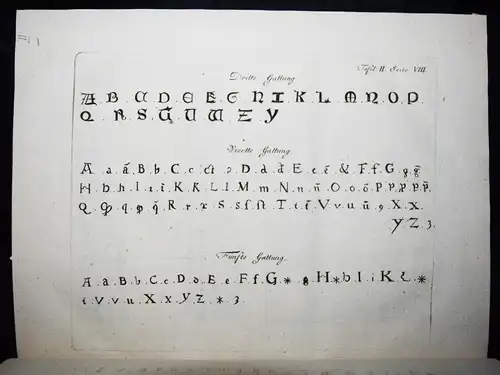 Dritte Gattung
Tafel II. Seite VIII.
A. B. C. D. E. E. G. H. I. K. L. M. N. O. P.
Q. R. S. T. U. W. Z. Y
Vierte Gattung.
A. a. ā. B. b. C. c. ct. D. d. E. e. ē. & F. f. G. g.
H. b. h. I. i. K. L. l. M. m. N. n. ñ. O. o. õ. P. p.
Q. R. r. S. s. ſ. ſt. T. t. V. v. u. ū. X. x.
Y Z. 3.
Fünfte Gattung.
A. a. B. b. C. c. D. d. E. e. F. f. G * g H * b I. i K
t V v. u. X x. Y Z. * 3.